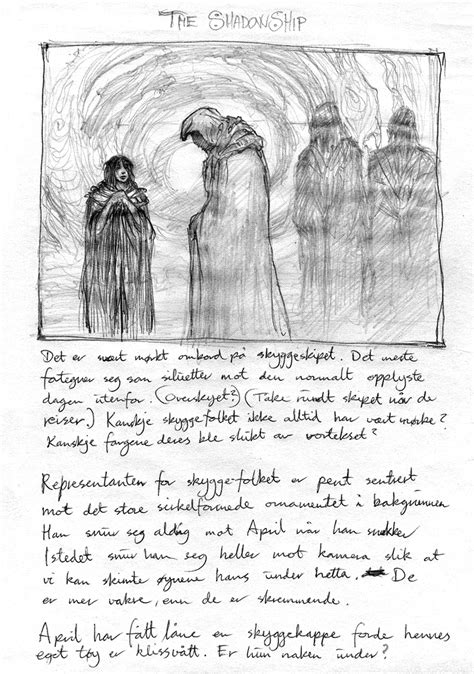 THE SHADOWSHIP
Det er svært mørkt ombord på skyggeskipet. Det meste
fortegner seg som siluetter mot den normalt opplyste
dagen utenfor. (Overskyet?) (Take rundt skipet når de
reiser.) Kanskje skygge-folket ikke alltid har vært mørke?
Kanskje fargene deres ble slukt av vortekset?
Representanten for skygge-folket er pent sentrert
mot det store sirkelformede ornamentet i bakgrunnen
Han snur seg aldrig mot April når han snakker
Istedet snur han seg heller mot kamera slik at
vi kan skimte øynene hans under hetta. De
er mer vakre, enn de er skremmende.
April har fått låne en skyggekappe fordi hennes
eget tøy er klissvått. Er hun naken under?